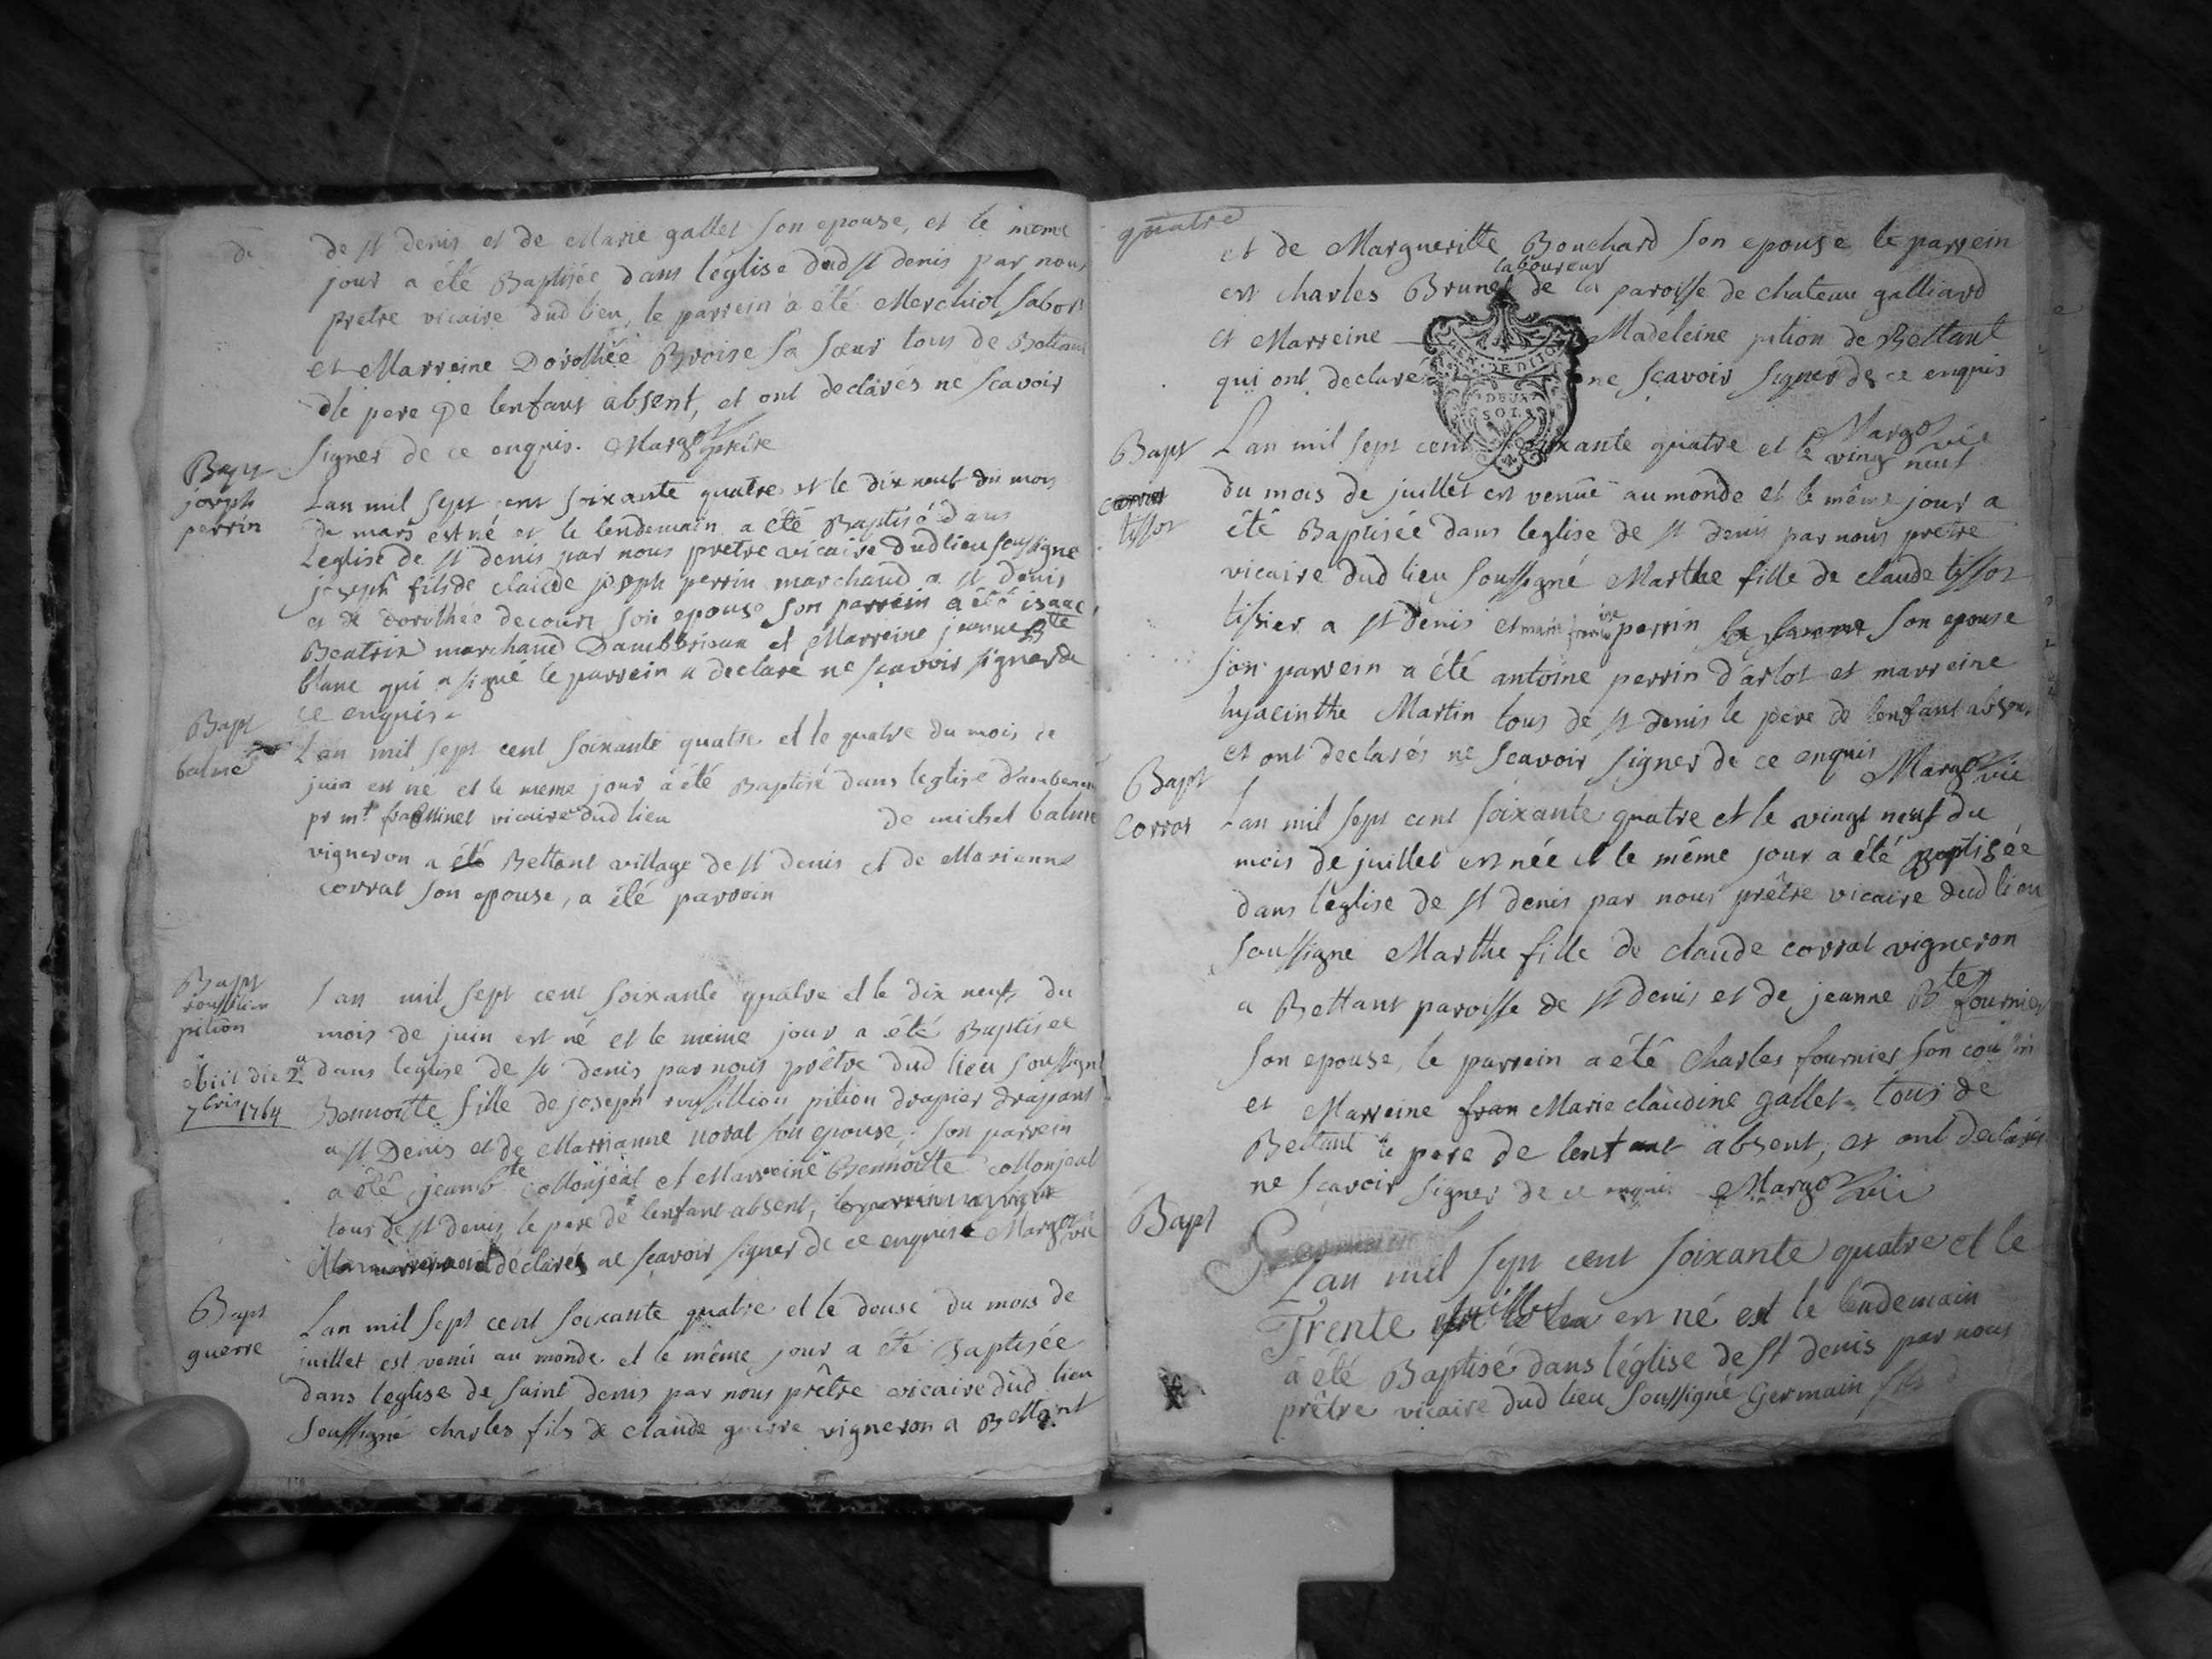 de st denis et de Marie gallet son epouse, et le meme
jour a été Baptisée dans léglise dud st denis par nous
pretre vicaire dud lieu, le parrein a été Merchiol
et Marreine Dorothée Broise sa sœur tous de
le pere de lenfant absent, et ont declarés ne scavoir
signer de ce enquis. Margot pretre
Bapt
joseph
perrin
Lan mil sept cent soixante quatre et le dix neuf du mois
de mars est né et le lendemain a été Baptisé dans
Leglise de st denis par nous pretre vicaire dud lieu soussigné
joseph fils de claude joseph perrin marchand a st denis
et de dorothée decourt son epouse son parrein a été isaac
Beatrix marchand Dambérieux et Marreine jeanne Bte
blanc qui a signé le parrein a declaré ne scavoir signer de
ce enquis.
Bapt
balme
Lan mil sept cent soixante quatre et le quatre du mois de
juin est né et le meme jour a été Baptisé dans leglise
pr mr vicaire dud lieu de michel balme
vigneron a été Bettant village de st denis et de Marianne
corrat son epouse, a été parrein
Bapt
roussillion
pition
obiit die 2a
7bris 1764
Lan mil sept cent soixante quatre et le dix neuf du
mois de juin est né et le meme jour a été Baptisée
dans leglise de st denis par nous prêtre dud lieu soussigné
Bennoitte fille de joseph roussillion pition drapier drapant
a st Denis et de Marrianne son epouse, son parrein
a été jean bte collonjeat et Marreine Bennoitte collonjeat
tous de st denis, le pere de lenfant absent,
déclarés ne scavoir signer de ce enquis Margot vic
Bapt
guerre
Lan mil sept cent soixante quatre et le douse du mois de
juillet est venu au monde et le même jour a été Baptisée
dans leglise de saint denis par nous prêtre vicaire dud lieu
soussigné charles fils de claude guerre vigneron a Bettant
quatre
et de Margueritte Bouchard son epouse le parrein
laboureur
est charles Brunet de la paroisse de chateau galliard
et Marreine Madeleine pition de Bettant
qui ont declaré ne scavoir signer de ce enquis
Margot vic
Bapt
corrat
tissot
Lan mil sept cent soixante quatre et le vingt neuf
du mois de juillet est venüe au monde et le même jour a
été Baptisée dans leglise de st denis par nous pretre
vicaire dud lieu soussigné Marthe fille de claude tissot
tissier a st denis et marie perrin son epouse
son parrein a été antoine perrin d'arlot et marreine
hyacinthe Martin tous de st denis le pere de lenfant absent
et ont declarés ne scavoir signer de ce enquis
Margot vic
Bapt
Corrat
Lan mil sept cent soixante quatre et le vingt neuf du
mois de juillet est née et le même jour a été Baptisée
dans léglise de st denis par nous prêtre vicaire dud lieu
soussigné Marthe fille de claude corrat vigneron
a Bettant paroisse de st denis et de jeanne Bte fournier
son epouse, le parrein a été Charles fournier son cousin
et Marreine fran Marie claudine gallet tous de
Bettant le pere de lenfant absent, et ont declarés
ne scavoir signer de ce enquis Margot vic
Bapt
Lan mil sept cent soixante quatre et le
Trente juillet est né et le lendemain
a été Baptisé dans léglise de st denis par nous
prêtre vicaire dud lieu soussigné Germain fils